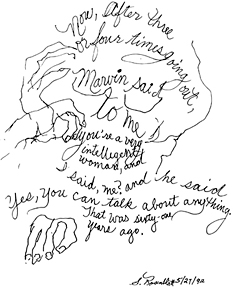 Now, After three
or four times going out,
Marvin said
to me
you're a very
intellegent
woman, and
I said, me? and he said
Yes, you can talk about anything.
That was sixty-one
years ago.
5/27/92